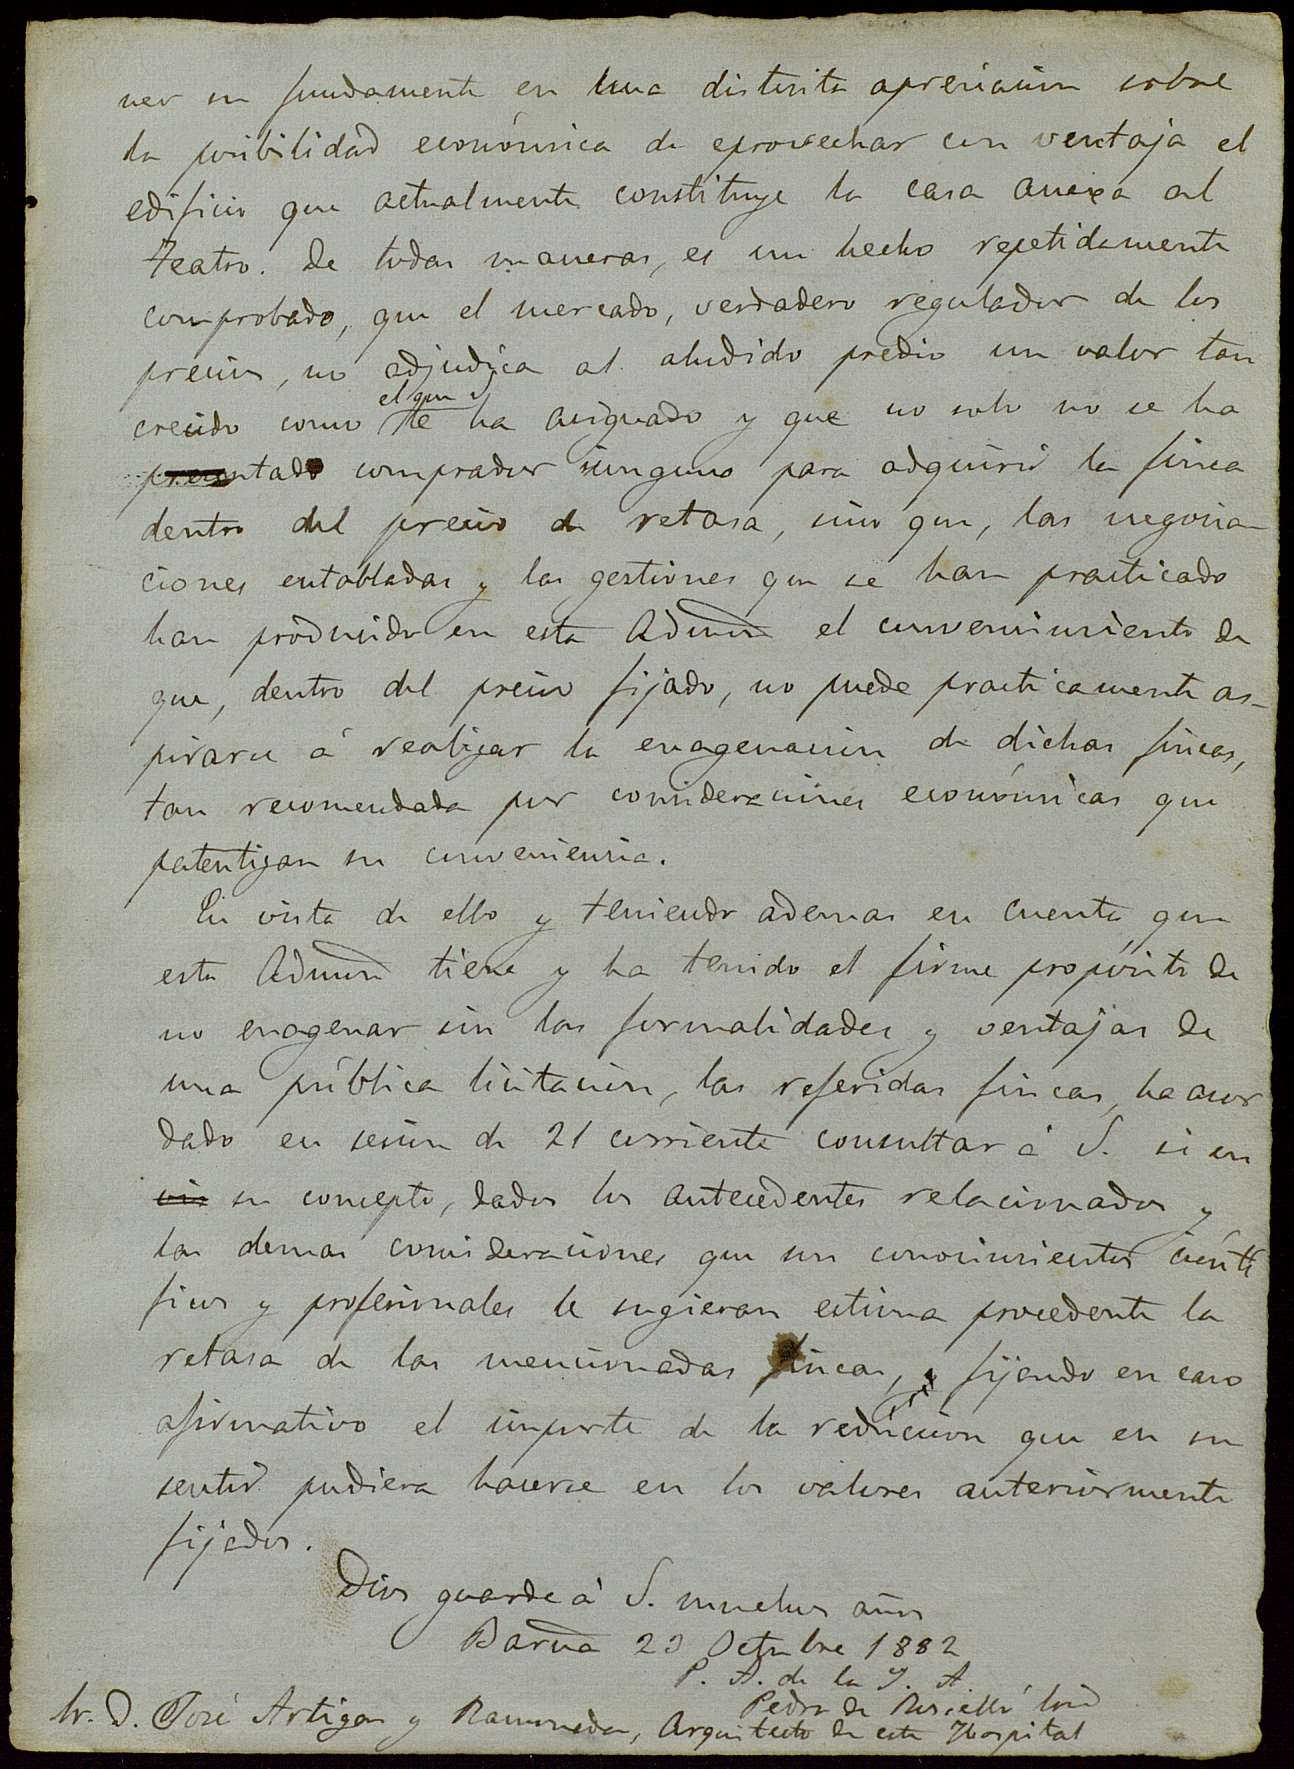 ner su fundamento en una distinta apreciacion sobre
la posibilidad económica de aprovechar con ventaja el
edificio que actualmente constituye la casa anexa al
Teatro. De todas maneras, es un hecho repetidamente
comprobado, que el mercado, verdadero regulador de los
precios, no adjudica al aludido predio un valor tan
el que se
crecido como le ha asignado y que no solo no se ha
presentado comprador ninguno para adquirir la finca
dentro del precio de retasa, sino que, las negocia-
ciones entabladas y las gestiones que se han practicado
han producido en esta Admon el convencimiento de
que, dentro del precio fijado, no puede practicamente as-
pirarse á realizar la enagenacion de dichas fincas,
tan recomendada por consideraciones económicas que
patentizan su conveniencia.
En vista de ello y teniendo ademas en cuenta que
esta Admon tiene y ha tenido el firme propósito de
no enagenar sin las formalidades y ventajas de
una pública licitacion, las referidas fincas, ha acor
dado en sesion de 21 corriente consultar á S. si en
su concepto, dados los antecedentes relacionados y
las demas consideraciones que sus conocimientos cientí
ficos y profesionales le sugieran estima procedente la
retasa de las mencionadas fincas, fijando en caso
afirmativo el importe de la reducción que en su
sentir pudiera hacerse en los valores anteriormente
fijados.
Dios guarde á S. muchos años
Barna 23 Octubre 1882
P. A. de la I. A.
Pedro de Rosselló
Sr. D. José Artigas y Ramoneda, Arquitecto de este Hospital